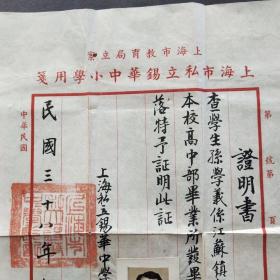 上海市教育局立案
上海市私立錫華中小學用箋
第 號第 頁
證明書
查學生孫學義係江蘇鎮
本校高中部畢業所發畢
落特予証明此証
上海私立錫華中學
民國三十八年
中華民國